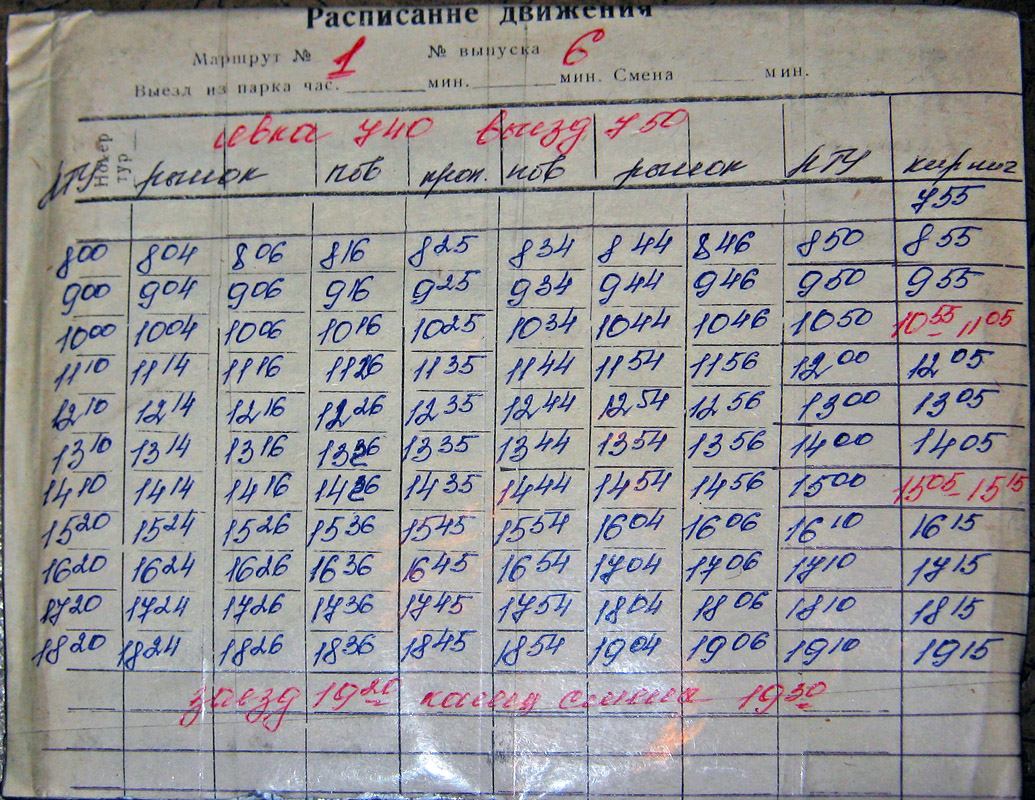 Расписание движения
Маршрут № 1 № выпуска 6
Выезд из парка час. мин. мин. Смена мин.
Номер тур
явка 7 40 выезд 7 50
рынок пов проп. пов рынок ПТУ кирпич
7 55
8 00 8 04 8 06 8 16 8 25 8 34 8 44 8 46 8 50 8 55
9 00 9 04 9 06 9 16 9 25 9 34 9 44 9 46 9 50 9 55
10 00 10 04 10 06 10 16 10 25 10 34 10 44 10 46 10 50 10 55 - 11 05
11 10 11 14 11 16 11 26 11 35 11 44 11 54 11 56 12 00 12 05
12 10 12 14 12 16 12 26 12 35 12 44 12 54 12 56 13 00 13 05
13 10 13 14 13 16 13 26 13 35 13 44 13 54 13 56 14 00 14 05
14 10 14 14 14 16 14 26 14 35 14 44 14 54 14 56 15 00 15 05 - 15 15
15 20 15 24 15 26 15 36 15 45 15 54 16 04 16 06 16 10 16 15
16 20 16 24 16 26 16 36 16 45 16 54 17 04 17 06 17 10 17 15
17 20 17 24 17 26 17 36 17 45 17 54 18 04 18 06 18 10 18 15
18 20 18 24 18 26 18 36 18 45 18 54 19 04 19 06 19 10 19 15
заезд 19 20 конец смены 19 30